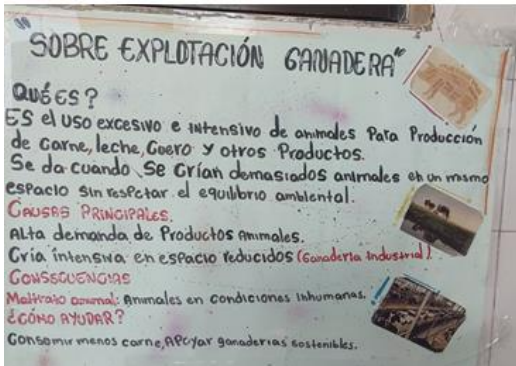 "SOBRE EXPLOTACIÓN GANADERA"
QUÉ ES?
ES el uso excesivo e intensivo de animales Para Producción
de carne, leche, Cuero y otros Productos.
Se da cuando se crían demasiados animales en un mismo
espacio sin respetar el equilibrio ambiental.
CAUSAS PRINCIPALES.
Alta demanda de Productos Animales.
Cría intensiva en espacio reducidos (Ganadería Industrial).
CONSECUENCIAS
Maltrato animal: Animales en condiciones inhumanas.
¿CÓMO AYUDAR?
Consomir menos carne, APoyar ganaderías sostenibles.